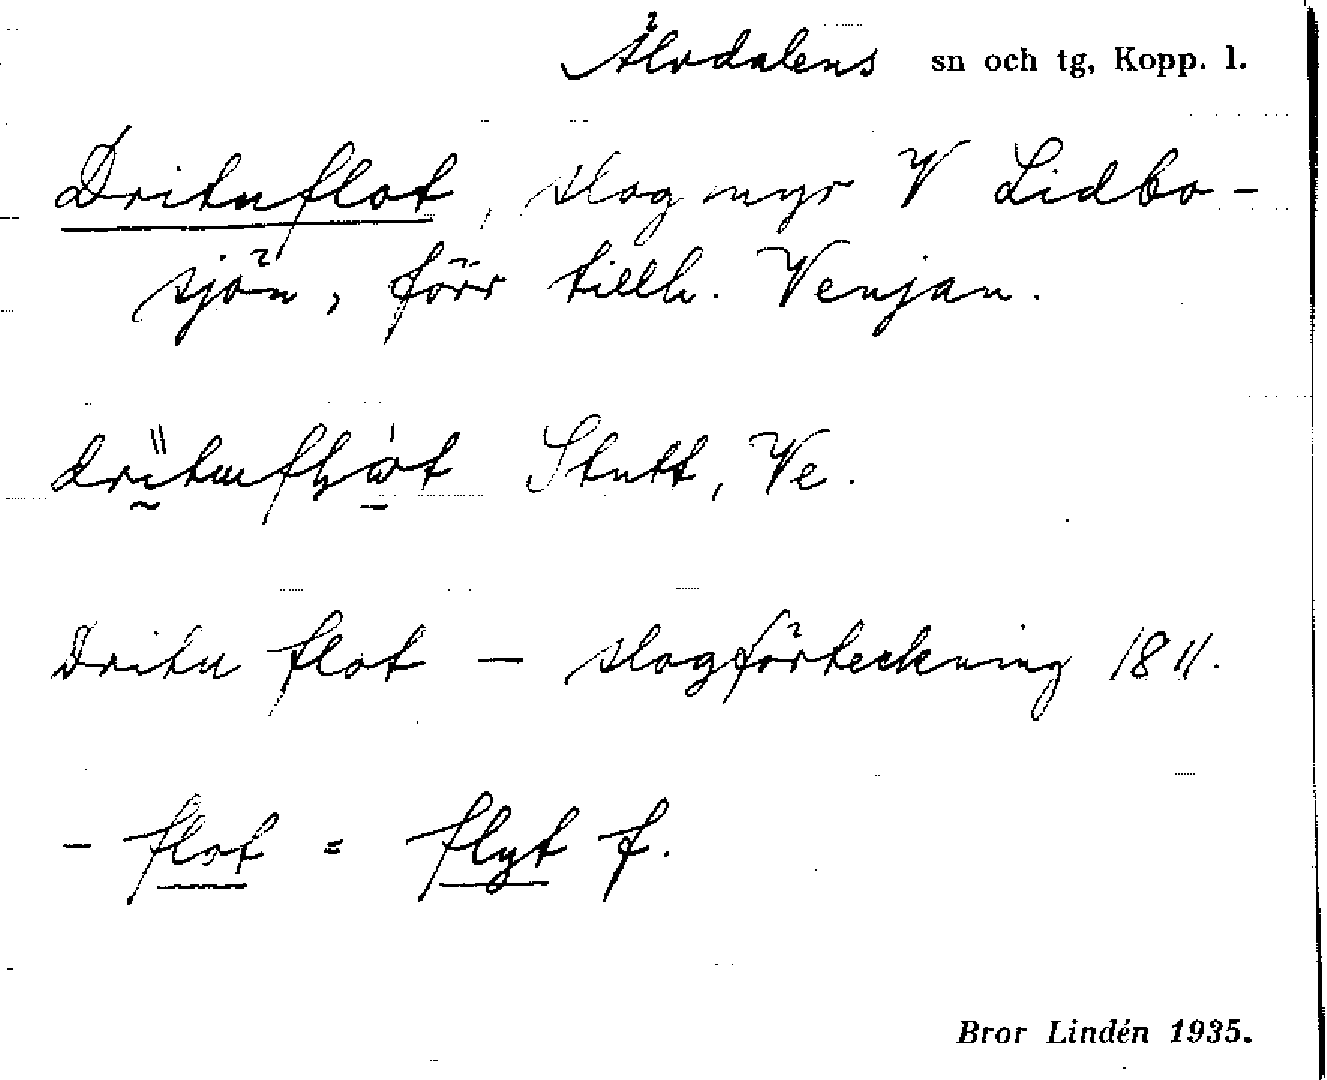 Älvdalens sn och tg, Kopp. l.
Drituflot, slogmyr V Lidbo-
sjön, förr tillh. Venjan.
Stutt, Ve.
Dritu flot — slogförteckning 1811.
- flot = flyt f.
Bror Lindén 1935.